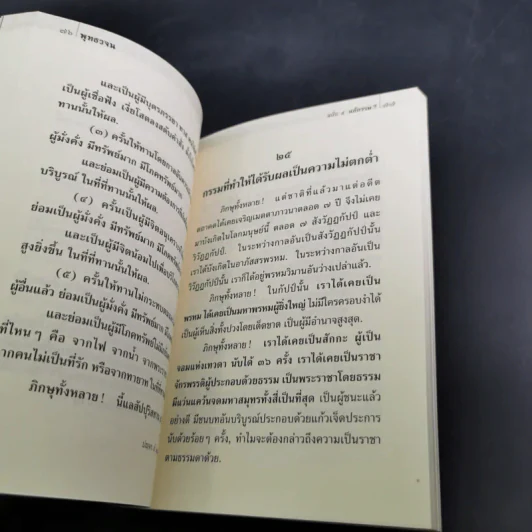 ๗๖ พุทธวจน
และเป็นผู้มีบุตรภรรยาทาส
เป็นผู้เชื่อฟัง เงี่ยโสตลงสดับคำสั่ง
ทานนั้นให้ผล.
(๓) ครั้นให้ทานโดยกาลอันควร
ผู้มั่งคั่ง มีทรัพย์มาก มีโภคทรัพย์
และย่อมเป็นผู้มีความต้องการ
บริบูรณ์ ในที่ที่ทานนั้นให้ผล.
(๔) ครั้นเป็นผู้มีจิตอนุเคราะห์
ย่อมเป็นผู้มั่งคั่ง มีทรัพย์มาก มีโภค
และเป็นผู้มีจิตน้อมไปเพื่อ
สูงยิ่งขึ้น ในที่ที่ทานนั้นให้ผล.
(๕) ครั้นให้ทานไม่กระทบตน
ผู้อื่นแล้ว ย่อมเป็นผู้มั่งคั่ง มีทรัพย์มาก มี
และย่อมเป็นผู้มีโภคทรัพย์ไม่
ที่ไหนๆ คือ จากไฟ จากน้ำ จากพระราชา
จากคนไม่เป็นที่รัก หรือจากทายาท ในที่ที่
ภิกษุทั้งหลาย ! นี้แลสัปปุริสทาน
๒๕
กรรมที่ทำให้ได้รับผลเป็นความไม่ตกต่ำ
ภิกษุทั้งหลาย ! แต่ชาติที่แล้วมาแต่อดีต
ตถาคตได้เคยเจริญเมตตาภาวนาตลอด ๗ ปี จึงไม่เคย
มาบังเกิดในโลกมนุษย์นี้ ตลอด ๗ สังวัฏฏกัปป์ และ
วิวัฏฏกัปป์. ในระหว่างกาลอันเป็นสังวัฏฏกัปป์นั้น
เราได้บังเกิดในอาภัสสรพรหม. ในระหว่างกาลอัน
เป็นวิวัฏฏกัปป์นั้น เราก็ได้อยู่พรหมวิมานอันว่างเปล่าแล้ว.
ภิกษุทั้งหลาย ! ในกัปป์นั้น เราได้เคยเป็น
พรหม ได้เคยเป็นมหาพรหมผู้ยิ่งใหญ่ ไม่มีใครครอบงำได้
เป็นผู้เห็นสิ่งทั้งปวงโดยเด็ดขาด เป็นผู้มีอำนาจสูงสุด.
ภิกษุทั้งหลาย ! เราได้เคยเป็นสักกะ ผู้เป็น
จอมแห่งเทวดา นับได้ ๓๖ ครั้ง เราได้เคยเป็นราชา
จักรพรรดิผู้ประกอบด้วยธรรม เป็นพระราชาโดยธรรม
มีแว่นแคว้นจดมหาสมุทรทั้งสี่เป็นที่สุด เป็นผู้ชนะแล้ว
อย่างดี มีชนบทอันบริบูรณ์ประกอบด้วยแก้วเจ็ดประการ
นับด้วยร้อยๆ ครั้ง, ทำไมจะต้องกล่าวถึงความเป็นราชา
ตามธรรมดาด้วย.